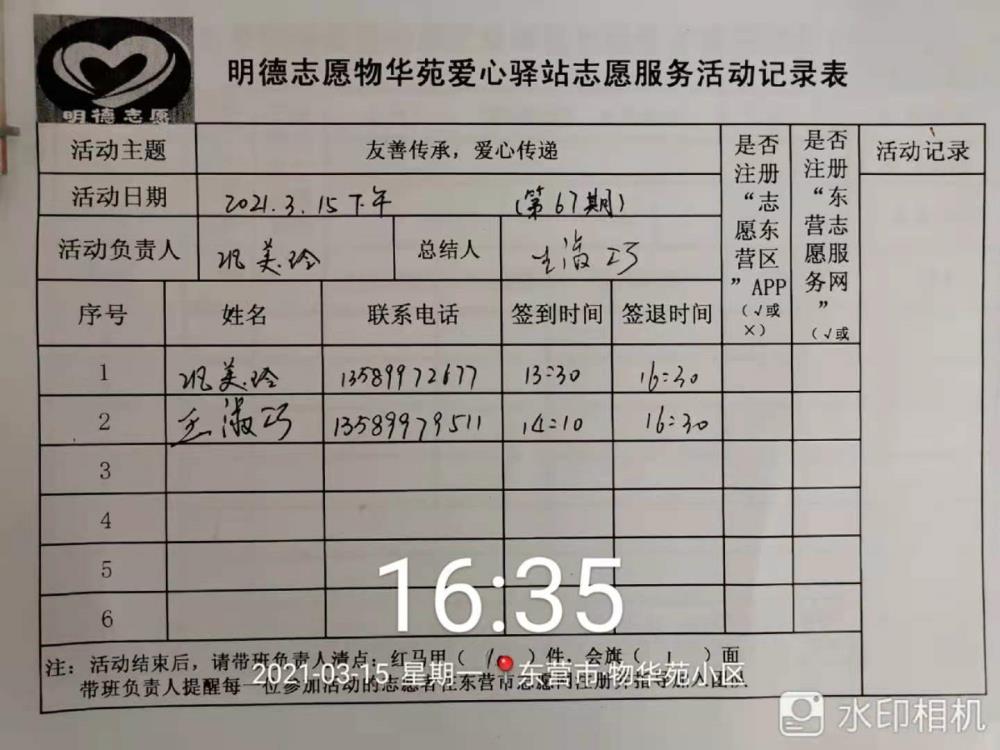 明德志愿
明德志愿物华苑爱心驿站志愿服务活动记录表
活动主题 友善传承，爱心传递
是否注册“志愿东营区”APP（√或×）
是否注册“东营志愿服务网”（√或
活动记录
活动日期 2021.3.15下午 （第67期）
活动负责人 巩美玲 总结人 王淑巧
序号 姓名 联系电话 签到时间 签退时间
1 巩美玲 13589972677 13:30 16:30
2 王淑巧 13589979511 14:10 16:30
3
4
5
6
16:35
注：活动结束后，请带班负责人清点：红马甲（ ）件，会旗（ 1 ）面
2021-03-15 星期一 东营市·物华苑小区
带班负责人提醒每一位参加活动的志愿者在东营市志愿网注册并指导加入团队
水印相机